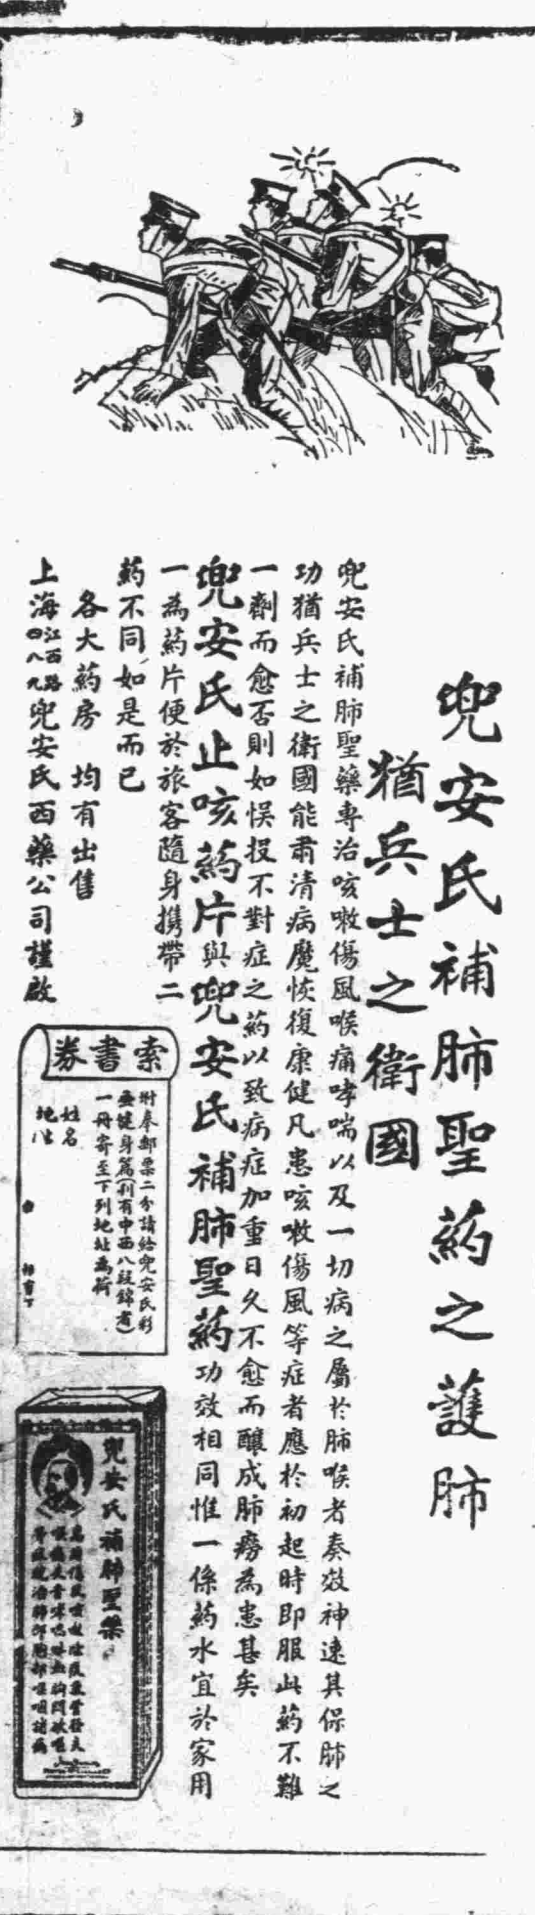 兜安氏補肺聖葯之護肺
猶兵士之衛國
兜安氏補肺聖藥專治咳嗽傷風喉痛哮喘以及一切病之屬於肺喉者奏效神速其保肺之
功猶兵士之衛國能肅清病魔恢復康健凡患咳嗽傷風等症者應於初起時即服此葯不難
一劑而愈否則如悞投不對症之葯以致病症加重日久不愈而釀成肺癆為患甚矣
兜安氏止咳葯片與兜安氏補肺聖葯功效相同惟一係葯水宜於家用
一為葯片便於旅客隨身携帶二
葯不同如是而已
各大葯房 均有出售
上海江西路四八九兜安氏西藥公司謹啟
索書券
附奉郵票二分請給兜安氏彩
畫健身篇(刊有中西八段錦者)
一冊寄至下列地址為荷
姓名
地址
兜安氏補肺聖藥